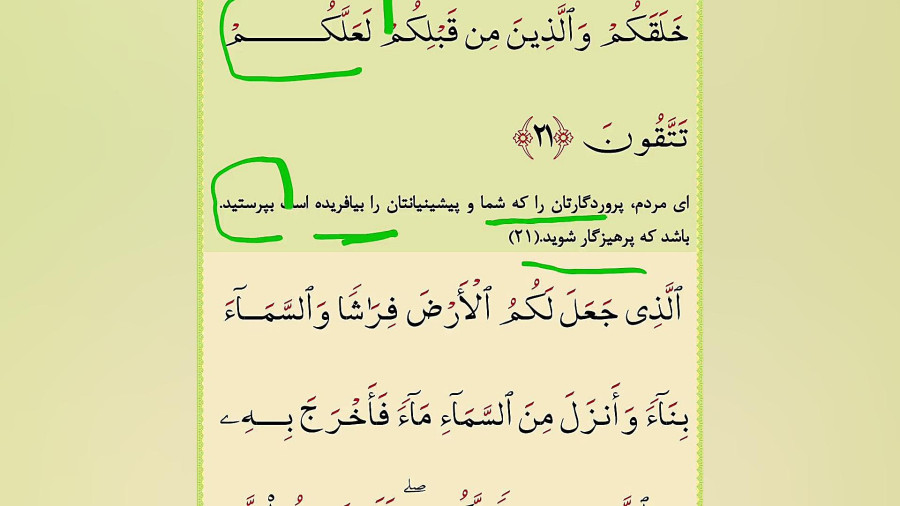 خَلَقَكُمْ وَٱلَّذِينَ مِن قَبْلِكُمْ لَعَلَّكُمْ
تَتَّقُونَ ﴿٢١﴾
ای مردم، پروردگارتان را که شما و پیشینیانتان را بیافریده است بپرستید.
باشد که پرهیزگار شوید.(۲۱)
ٱلَّذِی جَعَلَ لَكُمُ ٱلْأَرْضَ فِرَٰشًا وَٱلسَّمَآءَ
بِنَآءً وَأَنزَلَ مِنَ ٱلسَّمَآءِ مَآءً فَأَخْرَجَ بِهِۦ